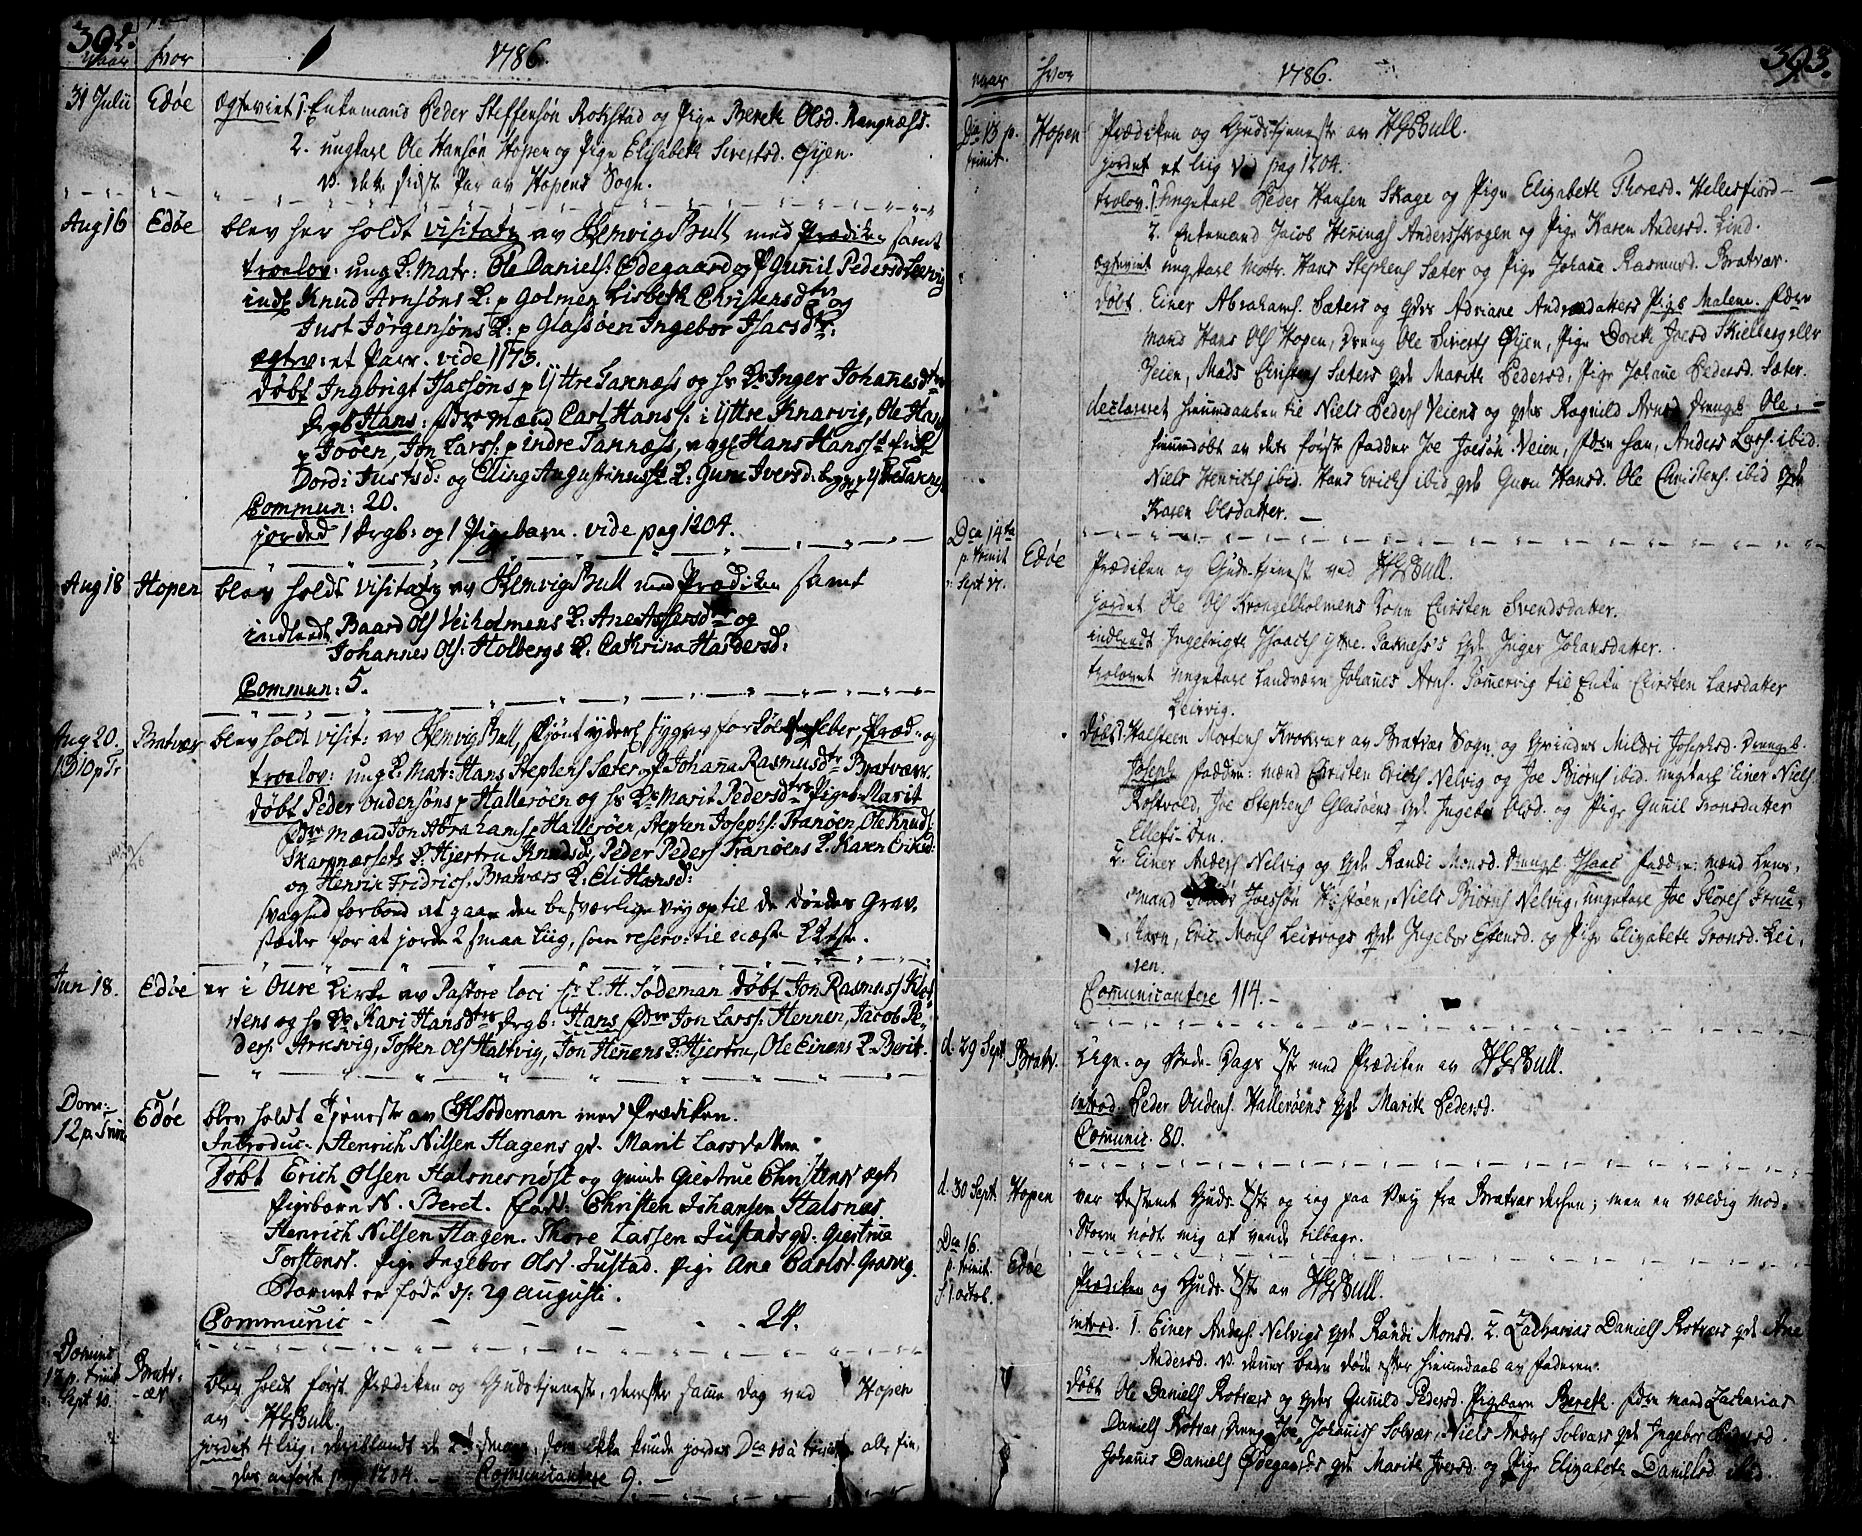 392.
naar hvor 1786.
31 Julii Edøe Ægteviet 1. Enkemand Peder Steffensøn Rokstad og Pige Bereth Olsd. Rangnæss.
2. ungkarl Ole Hansøn Hopen og Pige Elisabeth Sivertsd. Øyen.
NB. dette sidste Par av Hopens Sogn.
Aug 16 Edøe blev her holdt visitatz av Hemvig Bull med Prædiken samt
troelov: ung K: Matr: Ole Daniels: Ødegaard og P Gunnil Pedersd Leervig
indl Knud Arnsøns K: p Golmen Lisbeth Christensdtr og
Just Jørgensøns K: p Glassøen Ingebor Isacsdtr:
ægtev: et Parr. vide 1173.
døbt Ingbrigt Isacsøns p Yttre Taknæss og hs Ks Inger Johanesdtrs
Drgb Hans: fdre mænd Carl Hanss: i Yttre Knarvig, Ole Hans
p Joøen, Jon Larss: p indre Tannæss, Hans Hanss
Dordi Justsd: og Elling Augustinuss K: Guru Iversd:
Commun: 20.
jorded 1 Drgb: og 1 Pigebarn. vide pag 1204.
Aug 18 Hopen blev holdt visitatz av Hemvig Bull med Prædiken samt
indledt Baard Ols Veiholmens K: Ane Assersdtr og
Johannes Ols: Holbergs K. Cathrina Hasdersd:
Commun: 5.
Aug 20. Bratvær blev holdt visit: av Hemvig Bull, skjønt yderst syg av feber, Præd: og
D 10 p Tr troelov: ung K: Matr: Hans Stephens Sæter og P Johanna Rasmusdtr Bratværr.
døbt Peder Oudensøns p Hallerøen og hs Ks Marit Pedersdtrs Pigeb Marit
fdre mænd Jon Abrahams p Hallerøen, Stephen Josephs: Tranøen, Ole Knuds
Skarpnæssets K: Hjertru Knudsd:, Peder Peders Tranøens K. Karen Eriksd:
og Henrik Fridrics. Bratværs K. Eli Hansd:
svaghed forbød at gaae den besværlige vey op til de Dødes Grav,
stæder for at jorde 2 smaa Liig, som reserv: til næste
Jun 18. Edøe er i Oure Kirke av Pastore loci hr C. H. Södeman døbt Jon Rasmuss
tens og hs Ks Kari Hansdtrs Drgb: Hans fdre Jon Larss: Hennen, Jacob Pe,
ders: Arnesvig, Tosten Ols Halsvig, Jon Hennens K: Hjertru, Ole Einens K. Berit.
Dom: 12 p. Trin Edøe blev holdt Tjeneste av CHSödeman med Prædiken.
Introduc: Henrich Nilsen Hagens qv. Marit Larsdatter
Døbt Erich Olsen Halsnesnøst og qvinde Giertrue Christensd ægt
Pigebarn N. Beret. Fadd: Christen Johansen Halsnæs.
Henrich Nilsen Hagen. Thore Lassen Justads qv: Giertrue
Torstensd. Pige Ingebor Olsd. Justad. Pige Ana Carlsd. Graavig.
Barnet er født d: 29 Augusti.
Communic - - - - - 24.
Domin: 13 p. Trinit Sept 10. Bratv-ær blev holdt først Prædiken og Gudstjeneste, derefter samme dag ved Hopen
av HGBull.
jordet 4 liig, deriblandt de 2de smaae, som ikke kunde jordes Dca 10a trinit alle fin,
des anført pag 1204. - Comunicantere 9. -
393.
naar hvor 1786.
Dca 13 p. trinit. Hopen Prædiken og Gudstjeneste av HGBull.
jordet et liig vid pag 1204.
trolov. 1. Ungkarl Peder Hansen Skage og Pige Elizabeth Thoresd. Hellesfiord -
2. Enkemand Jacob Henings Andersskogen og Pige Karen Andersd. Lind.
ægteviet ungkarl Matr. Hans Stephens Sæter og Pige Johana Rasmusd. Bratvær.
døbt. Einer Abrahams. Sæters og qdes Adriane Andreædatters Pigb Malene. fdre
mænd Hans Ols Hopen, Dreng Ole Siverts Øyen, Pige Doreth Joesd Skielberg eller
Veien, Mads Christens Sæters qde Marith Pedersd, Pige Johane Pedersd. Sæter.
declareret hiemedaaben til Niels Peders Veiens og qdes Ragnild Arnsd Drengeb: Ole. -
hiemedøbt av dets første fadder Joe Joesøn Veien, fdre han, Anders Lars. ibid.
Niels Henrichs ibid. Hans Erichs ibid qde Guru Hansd. Ole Christens. ibid qde
Karen Olsdatter. -
Dca 14ta p. trinit Sept 17. Edøe Prædiken og Guds-tjeneste ved HGBull.
jordet Ole Ols Krongelholmens Kone Chirsten Svendsdatter.
indledt Ingebrigte Isaachs yttre Taknæss's qde Inger Johansdatter.
trolovet Ungkarl Landværn Johanes Arns. Sømervig til Enke Chirsten Larsdatter
Leirvig.
døbt 1. Halsteen Mortens Krokvær av Bratvær Sogn og Qvindes Mildri Josephsd. Drengeb.
Joseph faddre: mænd Christen Erichs. Nelvig og Joe Biørns ibid. ungkarl Einer Niels
Rostvold, Joe Stephens Glasøens qde Ingebor Olsd. og Pige Gunil Tronsdatter
Ellefs-øen.
2. Einer Anders Nelvig og qde Randi Monsd. Drengeb. Isaac fadre: mænd Lens,
mand Joessøn Kiestøen, Niels Biørns Nelvig, ungkarl Joe Thores
, Eric Mons Leirvogs qde Ingebor Estensd. og Pige Elizabeth Tronsd. Lei,
ren.
Comunicantere 114. -
d. 29 Sept. Bratv. Uge- og Bede-Dags Tste med Prædiken av HGBull.
introd. Peder Oudens Hallerøens qde Marith Pedersd.
Comunic. 80.
d. 30 Sept Hopen var bestemt Guds-Tste og jeg paa Vey fra Bratvær derhen; men en vældig mod,
Storm nødte mig at vende tilbage.
Dca 16. p. trinit. f 1 octob. Edøe Prædiken og Guds-Tste av HGBull.
introd. 1. Einer Anders Nelvigs qde Randi Monsd. 2. Zacharias Daniels Rotværs qde Ane
Andersd. NB. denes barn døde efter hiemedaab av faderen.
døbt Ole Daniels Rotværs og qdes Gunild Pedersd. Pigebarn Bereth. fdre mænd Zacharias
Daniels Rotvær, Dreng Joe Johanis Solvær, Niels Anders Solværs qde Ingebor Pedersd.
Johanes Daniels Ødegaards qde Marith Iversd. og Pige Elizabeth Danielsd. ibid.